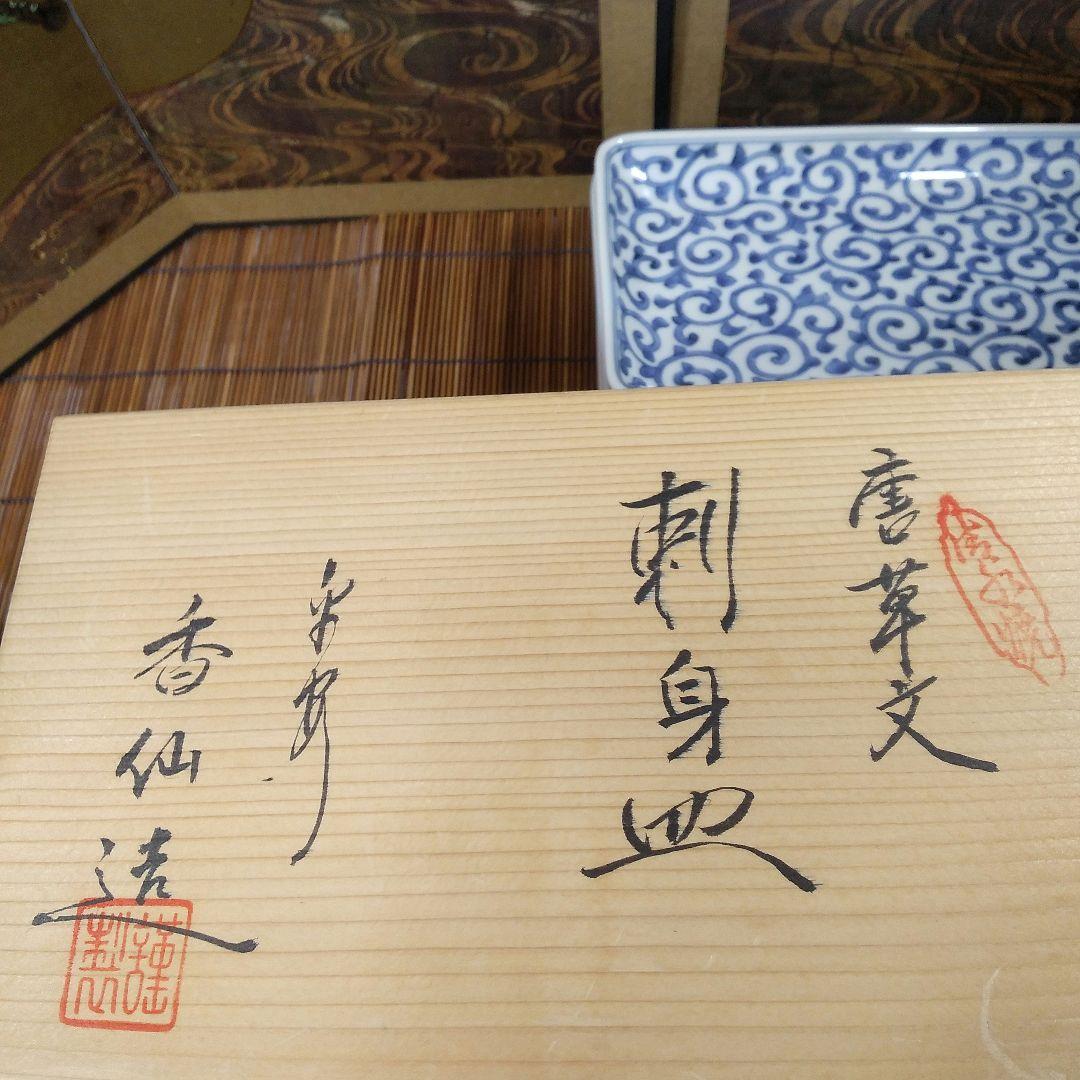 唐草文
刺身皿
平安
香仙造
謹製